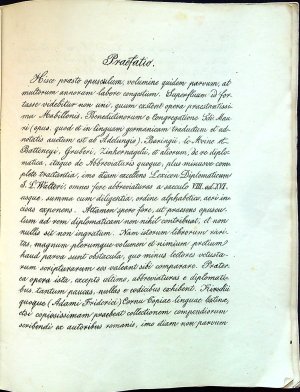 Praefatio.
Hisce prosto opusculum, volumine quidem parvum, at
multorum annorum labore congestum. Superfluum id for-
tasse videbitur non uni, quum exstent opera praestantissi-
ma Mabillonii, Benedictinorum e Congregatione Sti Mau-
ri (opus, quod et in linguam germanicam traductum et ad-
notatis auctum est ab Adelungio), Baringii, le Moine et
Batteneyi, Gruberi, Zinkernagelii, et aliorum, de re diplo-
matica, itaque de Abbreviaturis quoque, plus minusve comple-
te tractantia, imo etiam excellens Lexicon Diplomaticum
I. L. Walteri, omnes fere abbreviaturas a saeculo VIII. ad XVI.
usque, summa cum diligentia, ordine alphabetico, aeri in-
cisas exponens. Attamen spero fore, ut praesens opuscu-
lum rei vero diplomaticae non nihil contribuat, et non-
nullis sit non ingratum. Nam istorum librorum rari-
tas, magnum plerumque volumen et nimium pretium
haud parva sunt obstacula, quo minus lectores vetusta-
rum scripturarum eos valeant sibi comparare. Praete-
ea opera ista, excepto ultimo, abbreviaturas e diplomati-
bus tantum paucas, nullas e codicibus exhibent. Kirschii
quoque (Adami Friderici) Cornu Copiae linguae latinae,
etsi copiosissimam praebeat collectionem compendiorum
scribendi ex autoribus romanis, imo etiam non parvum